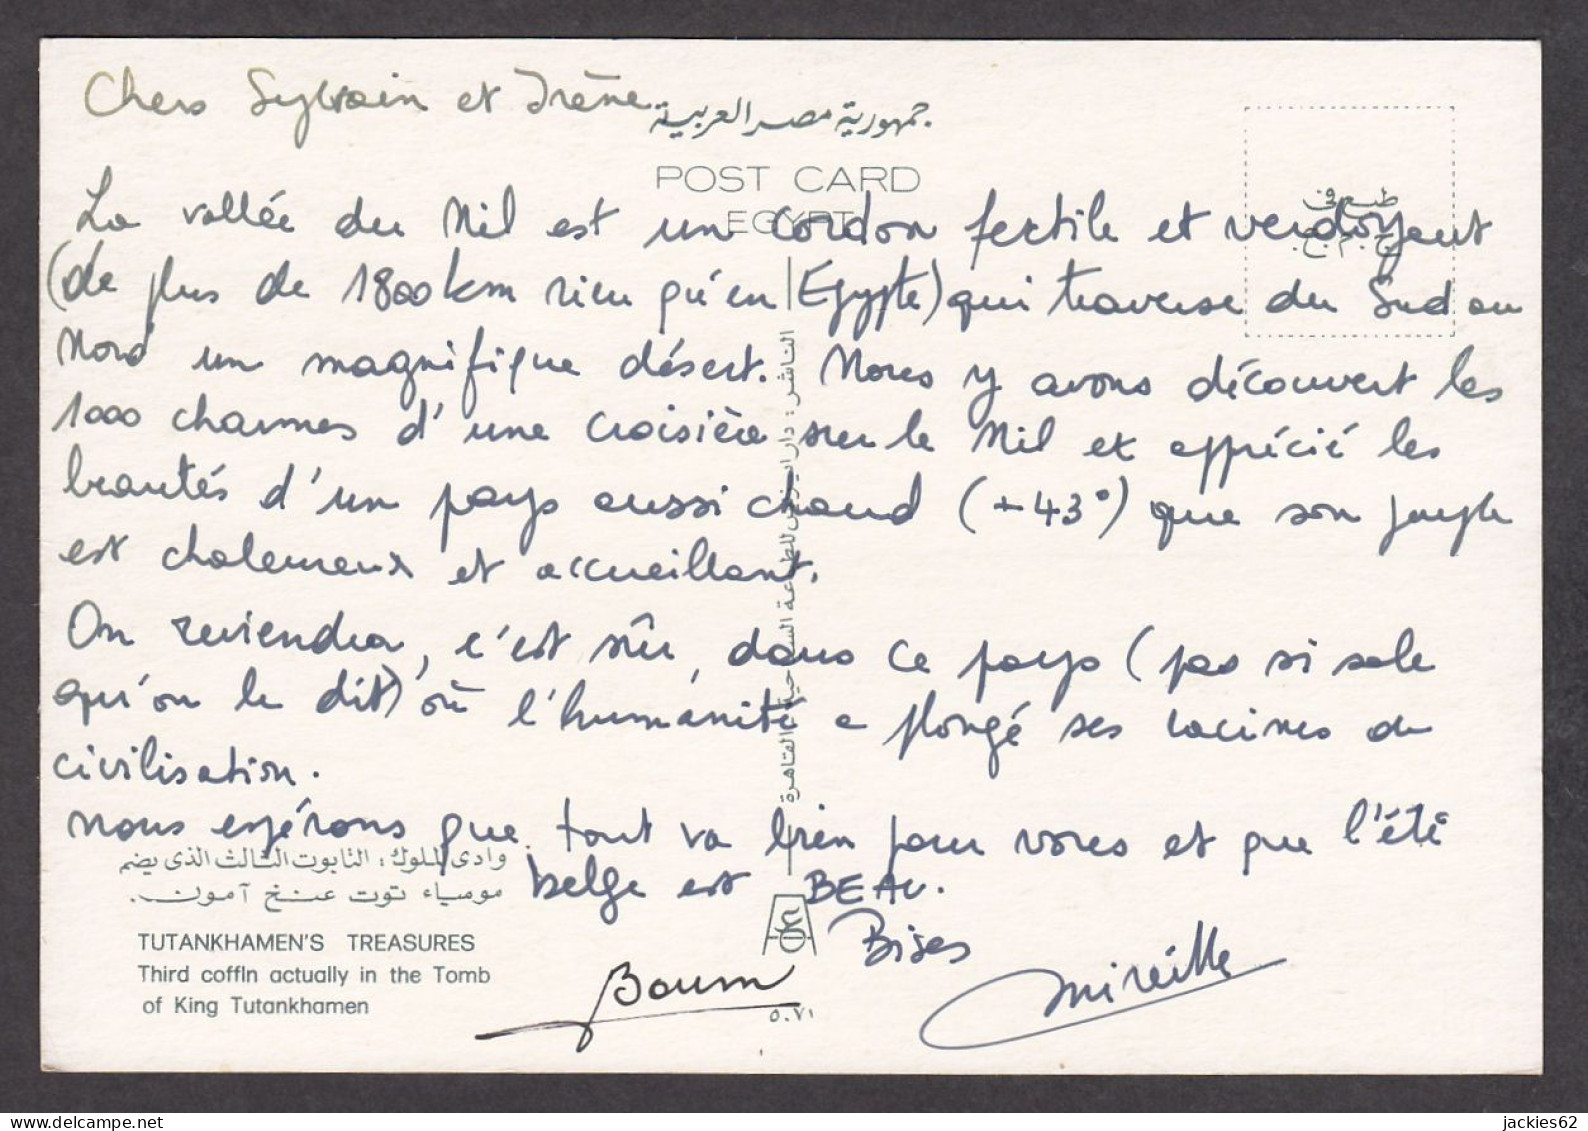 Chers Sylvain et Irène
جمهورية مصر العربية
POST CARD
EGYPT
طبع في
ج.م.ع.
La vallée du Nil est un cordon fertile et verdoyant
(de plus de 1800km rien qu'en Egypte) qui traverse du Sud au
Nord un magnifique désert. Nous y avons découvert les
1000 charmes d'une croisière sur le Nil et apprécié les
beautés d'un pays aussi chaud (+43°) que son peuple
est chaleureux et accueillant.
On reviendra, c'est sûr, dans ce pays (pas si sale
qu'on le dit) où l'humanité a plongé ses racines de
civilisation.
Nous espérons que tout va bien pour vous et que l'été
belge est BEAU.
Bises
Mireille
Boum
وادى الملوك: التابوت الثالث الذى يضم
مومياء توت عنخ آمون.
TUTANKHAMEN'S TREASURES
Third coffin actually in the Tomb
of King Tutankhamen
٥.٧١
الناشر: دار للطباعة السياحية القاهرة
www.delcampe.net
jackies62